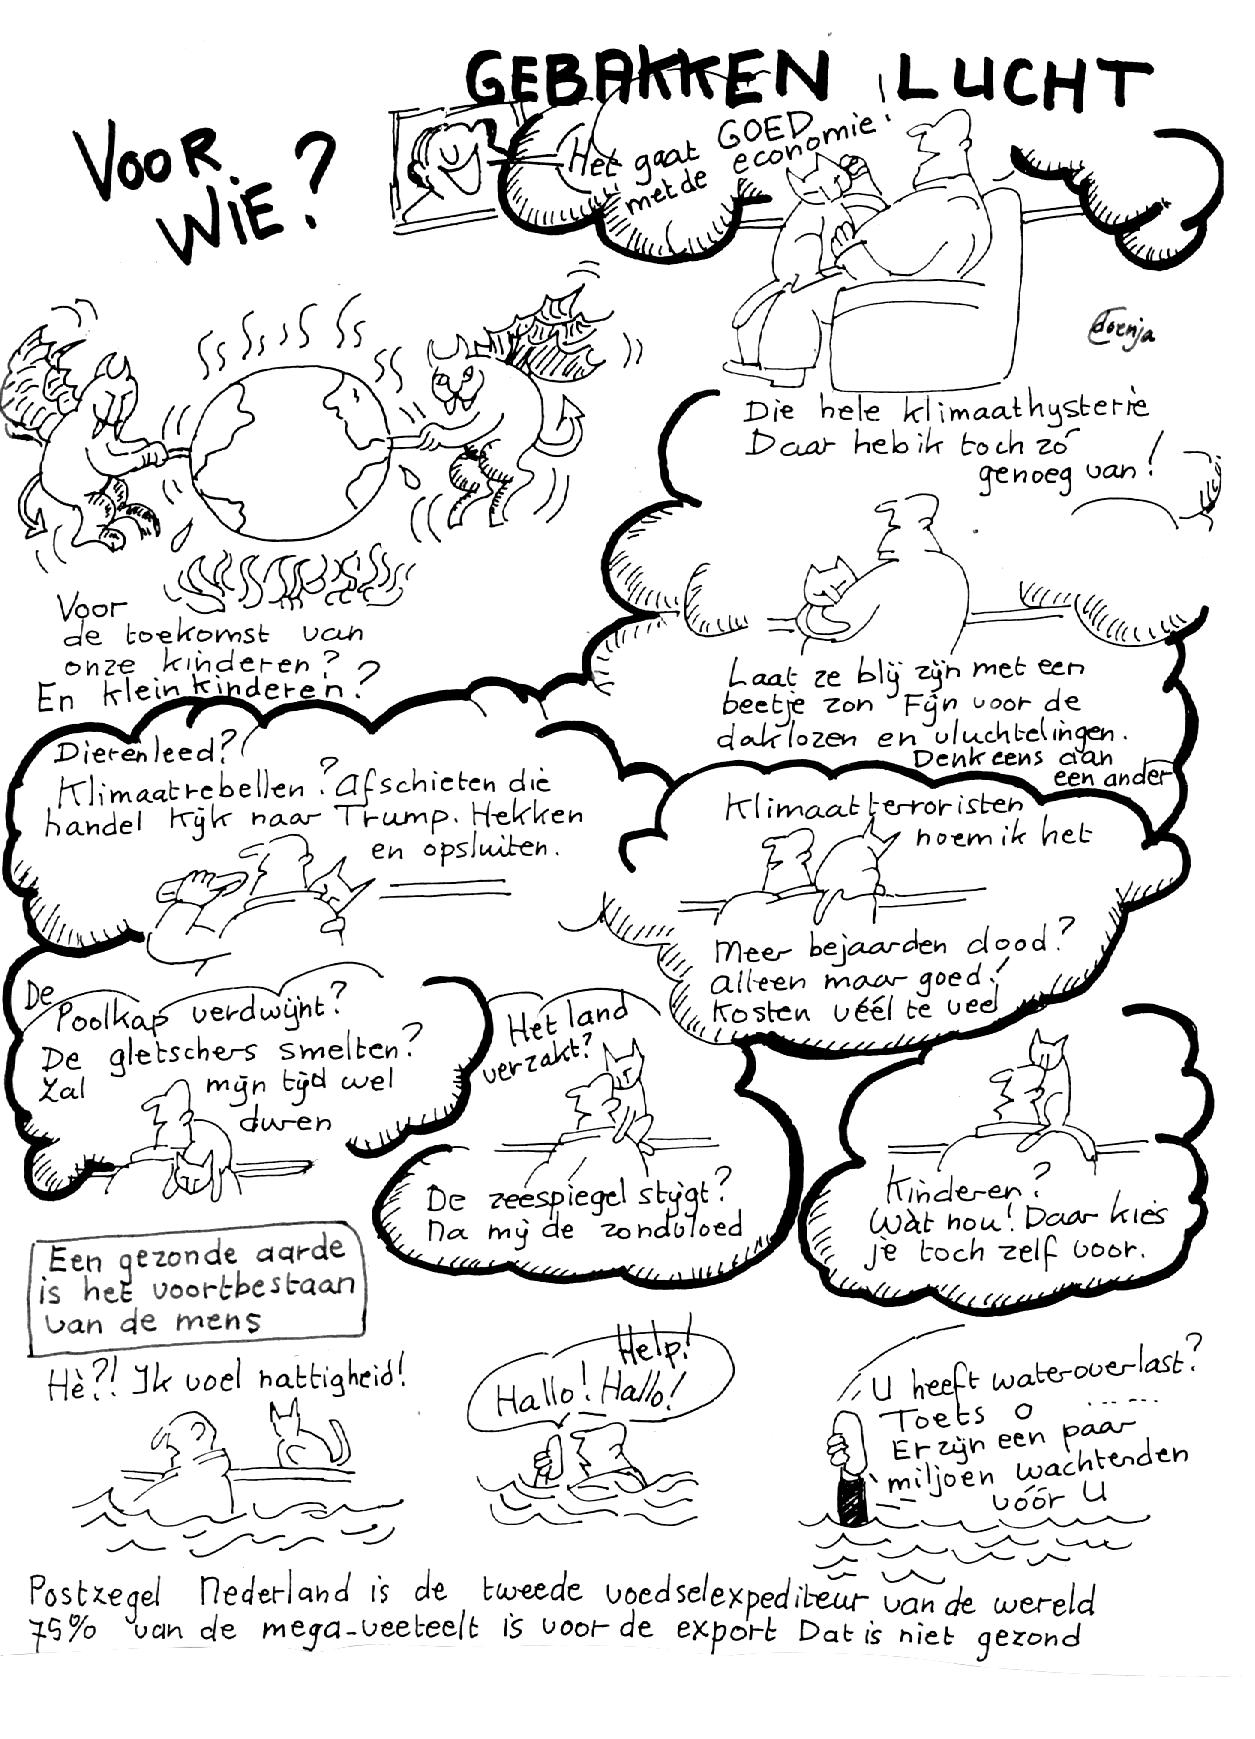 GEBAKKEN LUCHT
VOOR
WIE?
Het gaat GOED
met de economie!
Doenja
Die hele klimaathysterie
Daar heb ik toch zó
genoeg van!
Voor
de toekomst van
onze kinderen?
En kleinkinderen?
Laat ze blij zijn met een
beetje zon Fijn voor de
daklozen en vluchtelingen.
Denk eens aan
een ander
Dierenleed?
Klimaatrebellen? Afschieten die
handel Kijk naar Trump. Hekken
en opsluiten.
Klimaatterroristen
noem ik het
Meer bejaarden dood?
alleen maar goed!
Kosten véél te veel
De
Poolkap verdwijnt?
De gletschers smelten?
Zal mijn tijd wel
duren
Het land
verzakt?
De zeespiegel stijgt?
Na mij de zondvloed
Kinderen?
Wàt nou! Daar kies
je toch zelf voor.
Een gezonde aarde
is het voortbestaan
van de mens
Hè?! Ik voel nattigheid!
Help!
Hallo! Hallo!
U heeft wateroverlast?
Toets 0 .....
Er zijn een paar
miljoen wachtenden
vóór U
Postzegel Nederland is de tweede voedselexpediteur van de wereld
75% van de mega-veeteelt is voor de export Dat is niet gezond